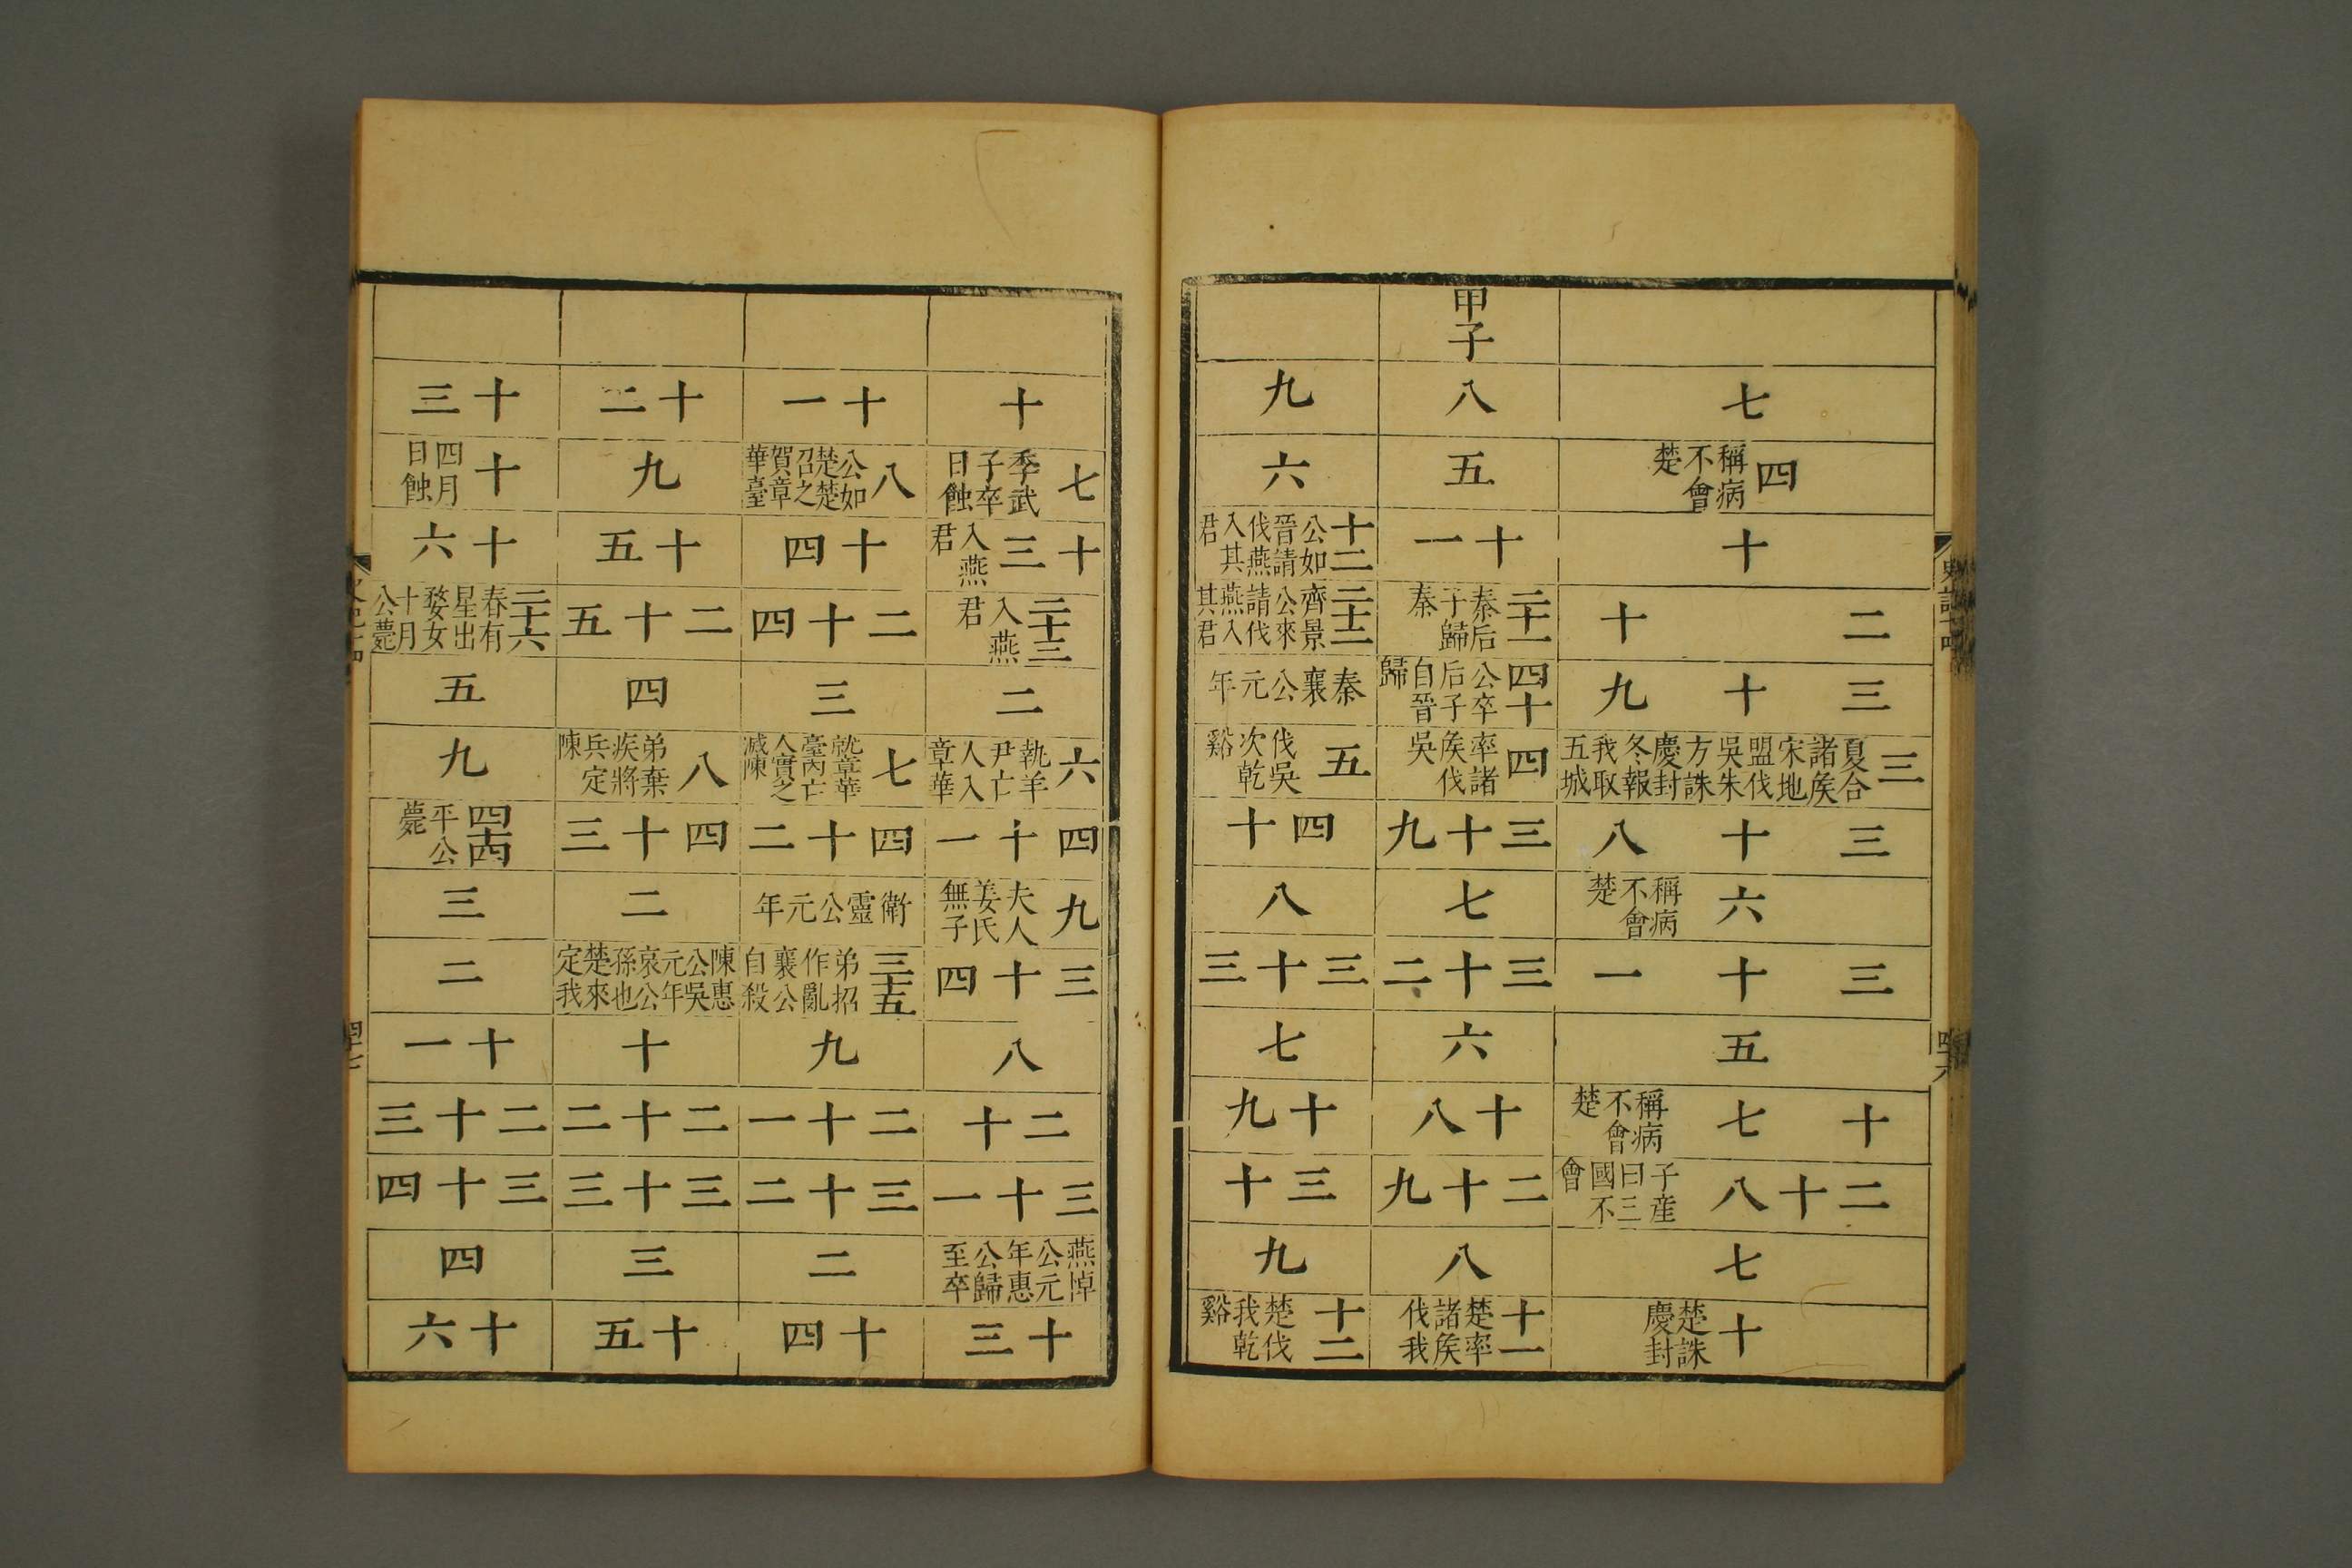 七
四 稱病不會楚
十
二十
三十九
三 夏合諸矦宋地盟伐吳朱方誅慶封冬報我取五城
三十八
六 稱病不會楚
三十一
五
十七 稱病不會楚
二十八 子產曰三國不會
七
十 楚誅慶封
甲子
八
五
十一
二十一 秦后子歸秦
四十 公卒后子自晉歸
四 率諸矦伐吳
三十九
七
三十二
六
十八
二十九
八
十一 楚率諸矦伐我
九
六
十二 公如晉請伐燕入其君
二十二 齊景公來請伐燕入其君
秦襄公元年
五 伐吳次乾谿
四十
八
三十三
七
十九
三十
九
十二 楚伐我乾谿
十
七 季武子卒日蝕
十三 入燕君
二十三 入燕君
二
六 執羊尹亡人入章華
四十一
九 夫人姜氏無子
三十四
八
二十
三十一
燕悼公元年惠公歸至卒
十三
十一
八 公如楚楚召之賀章華臺
十四
二十四
三
七 就章華臺內亡人實之滅陳
四十二
衛靈公元年
三十五 弟招作亂襄公自殺
九
二十一
三十二
二
十四
十二
九
十五
二十五
四
八 弟棄疾將兵定陳
四十三
二
陳惠公吳元年哀公孫也楚來定我
十
二十二
三十三
三
十五
十三
十 四月日蝕
十六
二十六 春有星出婺女十月公薨
五
九
四十四 平公薨
三
二
十一
二十三
三十四
四
十六